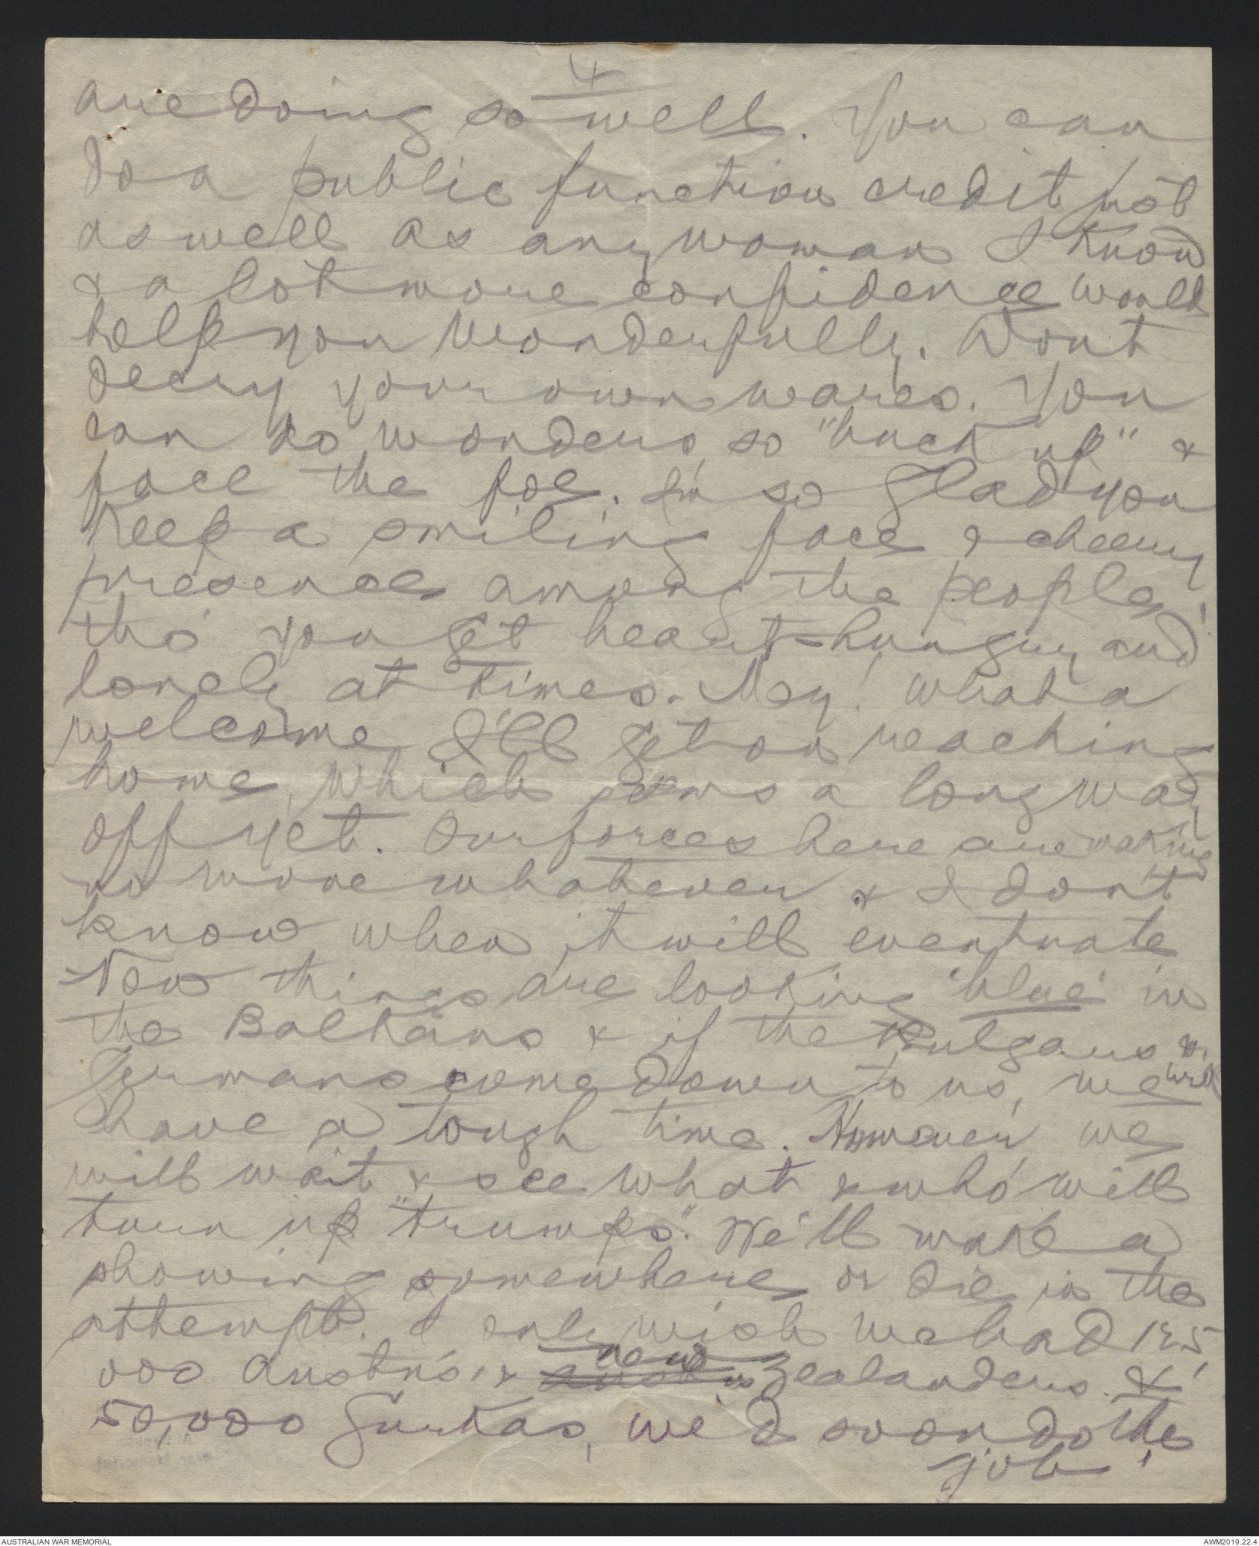 4
are doing so well. You can
do a public function credit just
as well as any woman I know
& a lot more confidence would
help you wonderfully. Dont
decry your own wares. You
can do wonders so "buck up" &
face the foe. I'm so glad you
keep a smiling face & cheery
presence among the people,
tho' you get heart-hungry and
lonely at times. My! what a
welcome I'll get on reaching
home, which seems a long way
off yet. Our forces here are making
no move whatever & I don't
know when it will eventuate
Now things are looking 'blue' in
the Balkans & if the Bulgars &
Germans come down to us, we will
have a tough time. However we
will wait & see what & who will
turn up "trumps". We'll make a
showing somewhere or die in the
attempt. I only wish we had 125,
000 Austns, & new Zealanders &
50,000 Gurkas, we'd soon do the
job!
AUSTRALIAN WAR MEMORIAL
AWM2019.22.4